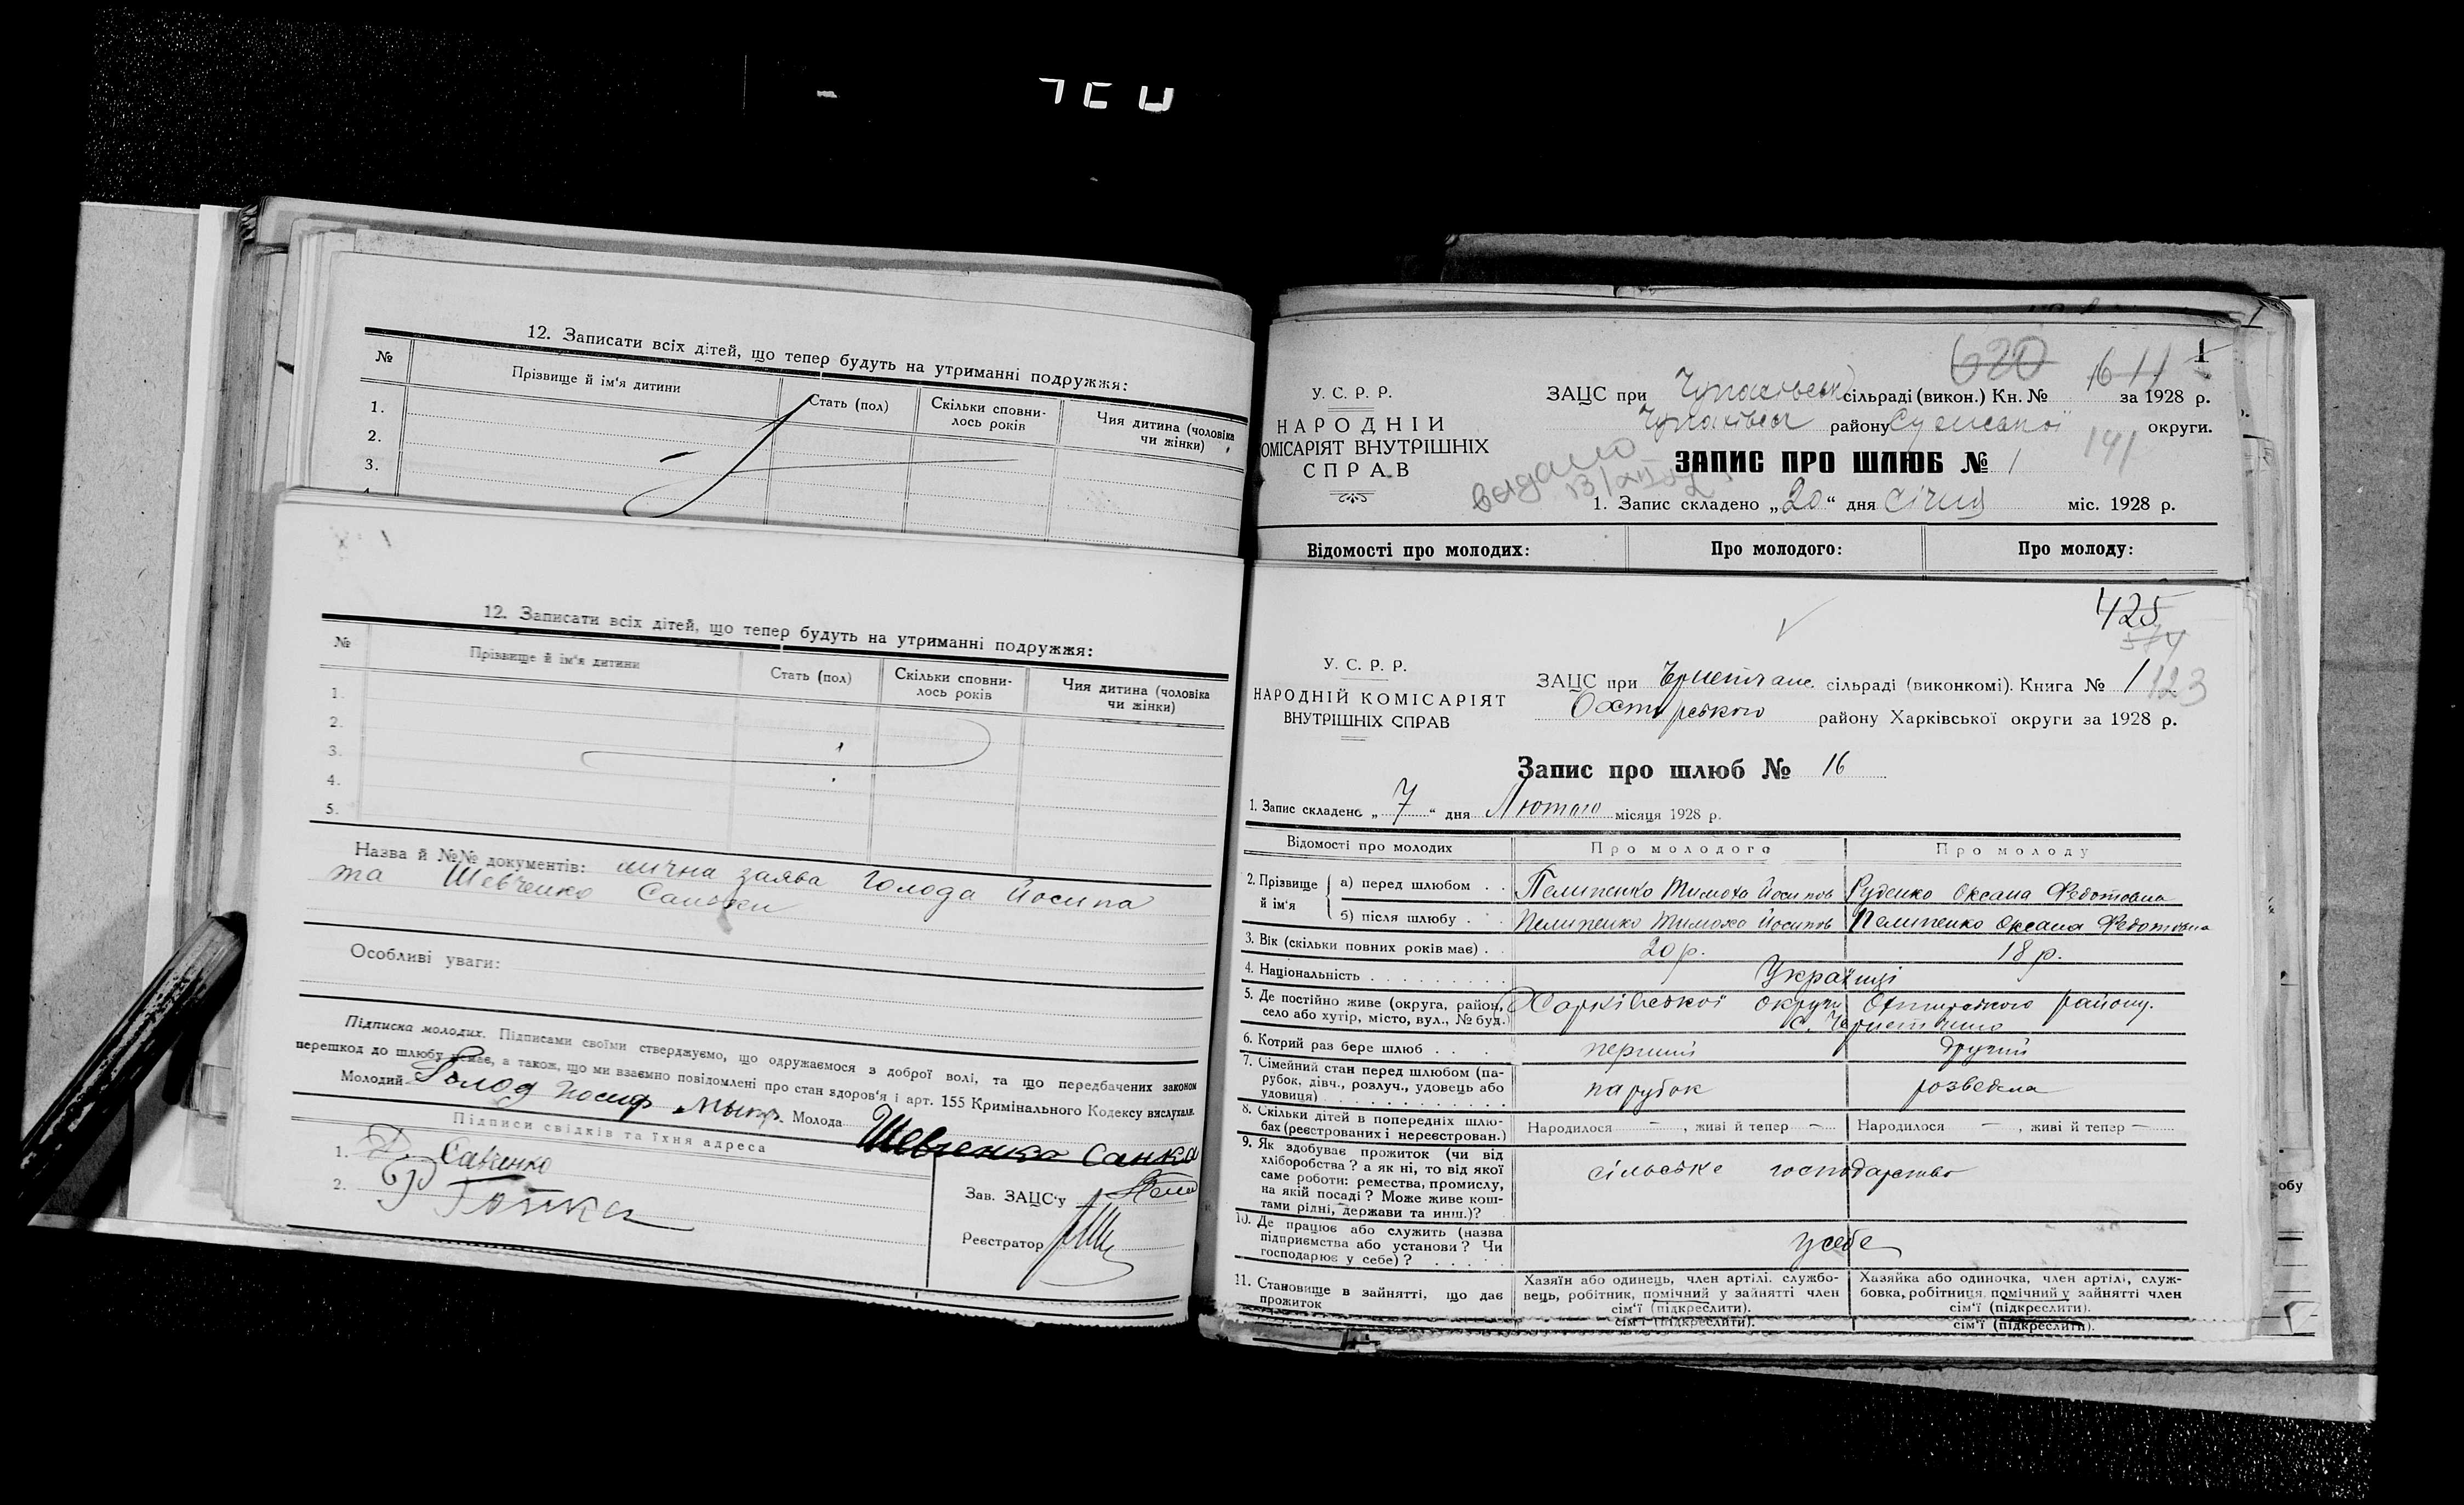 12. Записати всіх дітей, що тепер будуть на утриманні подружжя:
№ Прізвище й ім'я дитини Стать (пол) Скільки сповнилось років Чия дитина (чоловіка чи жінки)
1.
2.
3.
12. Записати всіх дітей, що тепер будуть на утриманні подружжя:
№ Прізвище й ім'я дитини Стать (пол) Скільки сповнилось років Чия дитина (чоловіка чи жінки)
1.
2.
3.
4.
5.
Назва й №№ документів: лична заява Голода Йосипа
та Шевченко Саньки
Особливі уваги:
Підписка молодих. Підписами своїми стверджуємо, що одружаємося з доброї волі, та що передбачених законом
перешкод до шлюбу немає, а також, що ми взаємно повідомлені про стан здоров'я і арт. 155 Кримінального Кодексу вислухали.
Молодий Голод Йосиф Молода Шевченко Санка
Підписи свідків та їхня адреса
1. Савченко
2.
Зав. ЗАЦС'у
Реєстратор
1
620 1611
У. С. Р. Р.
НАРОДНІЙ
ОМІСАРІЯТ ВНУТРІШНІХ
СПРАВ
ЗАЦС при сільраді (викон.) Кн. № за 1928 р.
району Сумської округи.
141
видано
ЗАПИС ПРО ШЛЮБ № 1
1. Запис складено „20“ дня січня міс. 1928 р.
Відомості про молодих: Про молодого: Про молоду:
425
574
У. С. Р. Р.
НАРОДНІЙ КОМІСАРІЯТ
ВНУТРІШНІХ СПРАВ
ЗАЦС при сільраді (виконкомі). Книга № 1 123
району Харківської округи за 1928 р.
Запис про шлюб № 16
1. Запис складено „7“ дня Лютого місяця 1928 р.
Відомості про молодих Про молодого Про молоду
2. Прізвище й ім'я
а) перед шлюбом . . Пелипенко Тимоха Йосипов Руденко Оксана Федотовна
б) після шлюбу . . Пелипенко Тимоха Йосипов Пелипенко Оксана Федотовна
3. Вік (скільки повних років має) . . 20 р. 18 р.
4. Національність . . . . . . . . . Українці
5. Де постійно живе (округа, район, село або хутір, місто, вул., № буд.) Харківської округи Охтирського району.
6. Котрий раз бере шлюб . . . перший другий
7. Сімейний стан перед шлюбом (парубок, дівч., розлуч., удовець або удовиця) . . . парубок розведена
8. Скільки дітей в попередніх шлюбах (реєстрованих і нереєстрован.) Народилося — , живі й тепер — Народилося — , живі й тепер —
9. Як здобуває прожиток (чи від хліборобства? а як ні, то від якої саме роботи: ремества, промислу, на якій посаді? Може живе коштами рідні, держави та инш.)? сільське господарство
10. Де працює або служить (назва підприємства або установи? Чи господарює у себе)? . . . . у себе
11. Становище в зайнятті, що дає прожиток Хазяїн або одинець, член артілі, службовець, робітник, помічний у зайнятті член сім'ї (підкреслити). Хазяйка або одиночка, член артілі, службовка, робітниця, помічний у зайнятті член сім'ї (підкреслити).
сім'ї (підкреслити). сім'ї (підкреслити).
обу